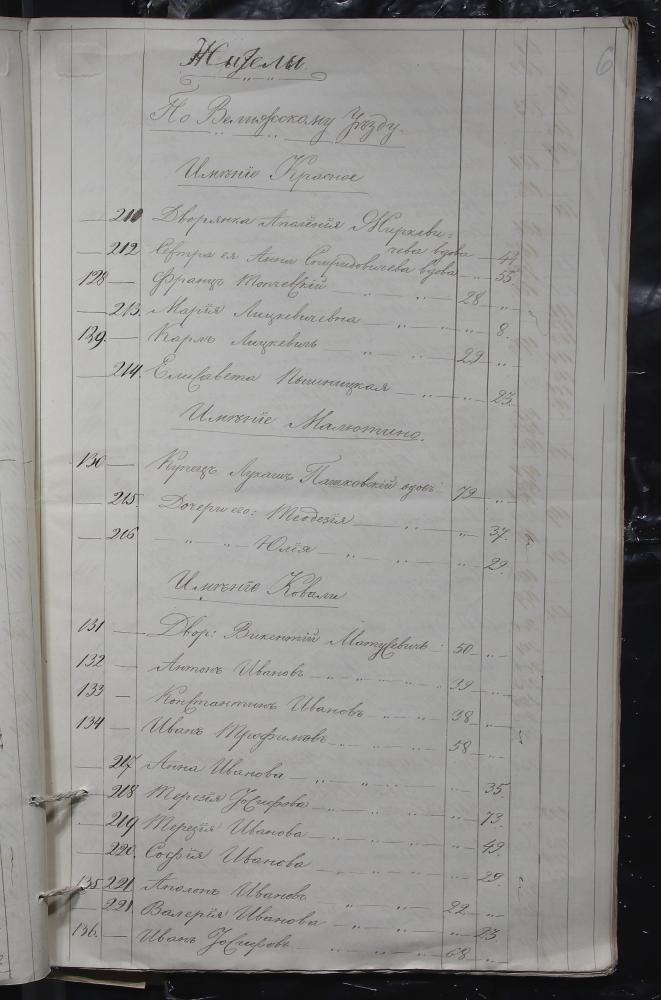 6
Жители
По Велижскому Уѣзду.
Имѣніе Красное
— 210 Дворянка Апалонія Жиркеви=
чева вдова — 44
— 212 Сестра ея Анна Спиридовичева вдова — „ 55
128 — Францъ Топчевскій „ — „ — 28 — „
— 213. Марія Лицкевичевна — „ — „ — „ 8.
129. — Карлъ Лицкевичъ „ — „ — 29 — „
— 214. Елисавета Пышницкая — „ — „ — 23.
Имѣніе Малютино.
130 — Купецъ Лукашъ Пашковскій вдовъ: 79 — „
— 215. Дочери его: Теодезія — „ — „ 37.
— 216 „ — „ Юлія — „ — „ — „ 29.
Имѣніе Ковали
131 — Двор: Викентій Матусевичъ: 50 — „
132 — Антонъ Ивановъ — „ — „ — „ 39 — „
133 — Константинъ Ивановъ „ — „ 38 — „
134 — Иванъ Трофимовъ — „ — „ — 58 — „
— 217 Анна Иванова — „ — „ — „ 35.
— 218 Терезія Іосифова — „ — „ — 73.
— 219 Терезія Иванова — „ — „ — „ 49.
— 220. Софія Иванова — „ — „ — „ 29.
135 221 Аполонъ Ивановъ „ — „ — 22 — „
— 221. Валерія Иванова — „ — „ — „ 23
136. — Иванъ Іосифовъ — „ — „ — 68 — „